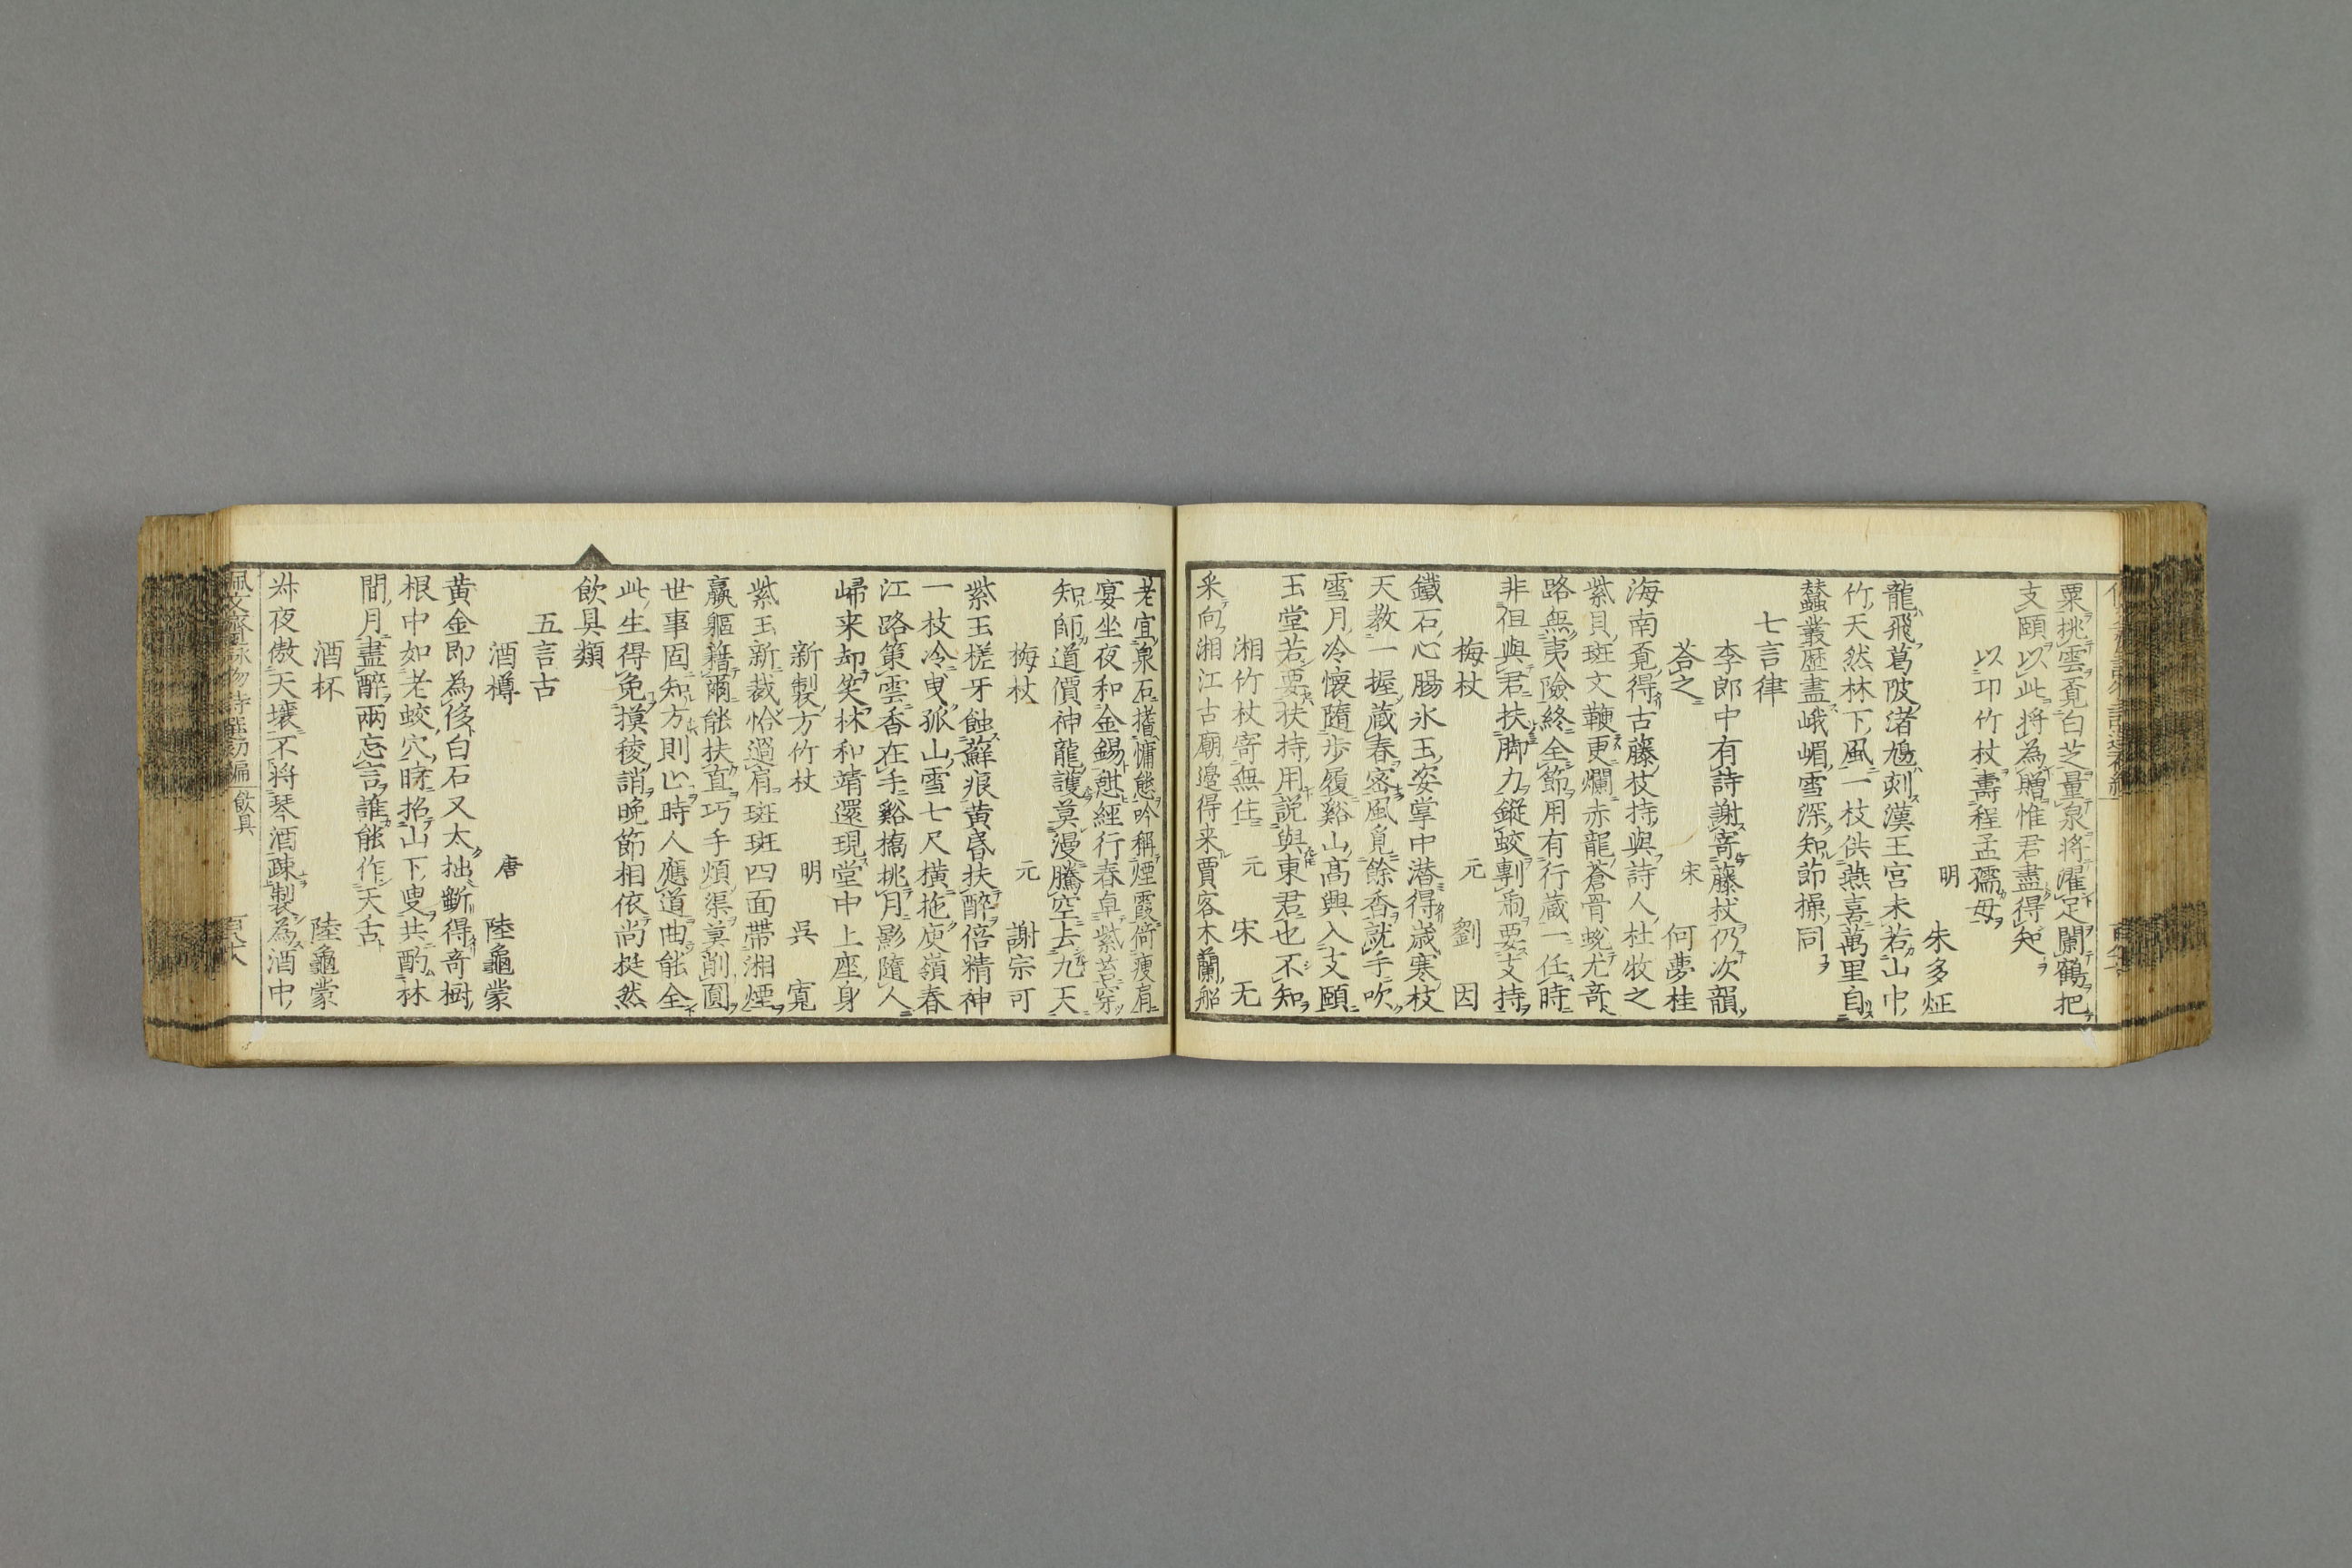 粟挑雲覔白芝量泉將濯足闌鶴把
支頤以此將為贈惟君盡得知
以卭竹杖壽程孟孺母
明 朱多炡
龍飛葛陂渚鳩刻漢王宮未若山中
竹天然林下風一枝供燕喜萬里自
蠶叢歴盡峨嵋雪深知節操同
七言律
李郎中有詩謝寄藤杖仍次韻
荅之 宋 何夢桂
海南覔得古藤杖持與詩人杜牧之
紫貝斑文鞭更爛赤龍蒼骨蛻尤竒
路無夷險終全節用有行藏一任時
非但與君扶脚力鏦蛟剸兕要支持
梅杖 元 劉因
鐵石心腸氷玉姿掌中潜得歳寒枝
天教一握藏春密風覓餘香就手吹
雪月冷懷隨歩履谿山髙興入支頤
玉堂若要扶持用説與東君也不知
湘竹杖寄無住 元 宋无
采向湘江古廟邊得来賈客木蘭船
老宜泉石㩼慵態吟稱煙霞倚痩肩
宴坐夜和金錫經行春卓紫苔穿
知師道價神龍護莫漫騰空去九天
梅杖 元 謝宗可
紫玉槎牙蝕蘚痕黄昏扶醉倍精神
一枝冷曳孤山雪七尺横拖庾嶺春
江路策雲香在手谿橋挑月影隨人
歸来却笑林和靖還現堂中上座身
新製方竹杖 明 吳寛
紫玉新裁恰過肩斑斑四面帶湘煙
羸軀藉爾能扶直巧手煩渠莫削圓
世事固知方則止時人應道曲能全
此生得免摸稜誚晩節相依尚挺然
飲具類
五言古
酒樽 唐 陸龜蒙
黄金即為侈白石又太拙斵得竒樹
根中如老蛟穴時招山下叟共酌林
間月盡醉兩忘言誰能作天舌
酒杯 陸龜蒙
叔夜傲天壤不將琴酒疎製為酒中
佩文齋詠物詩選初編 飲具